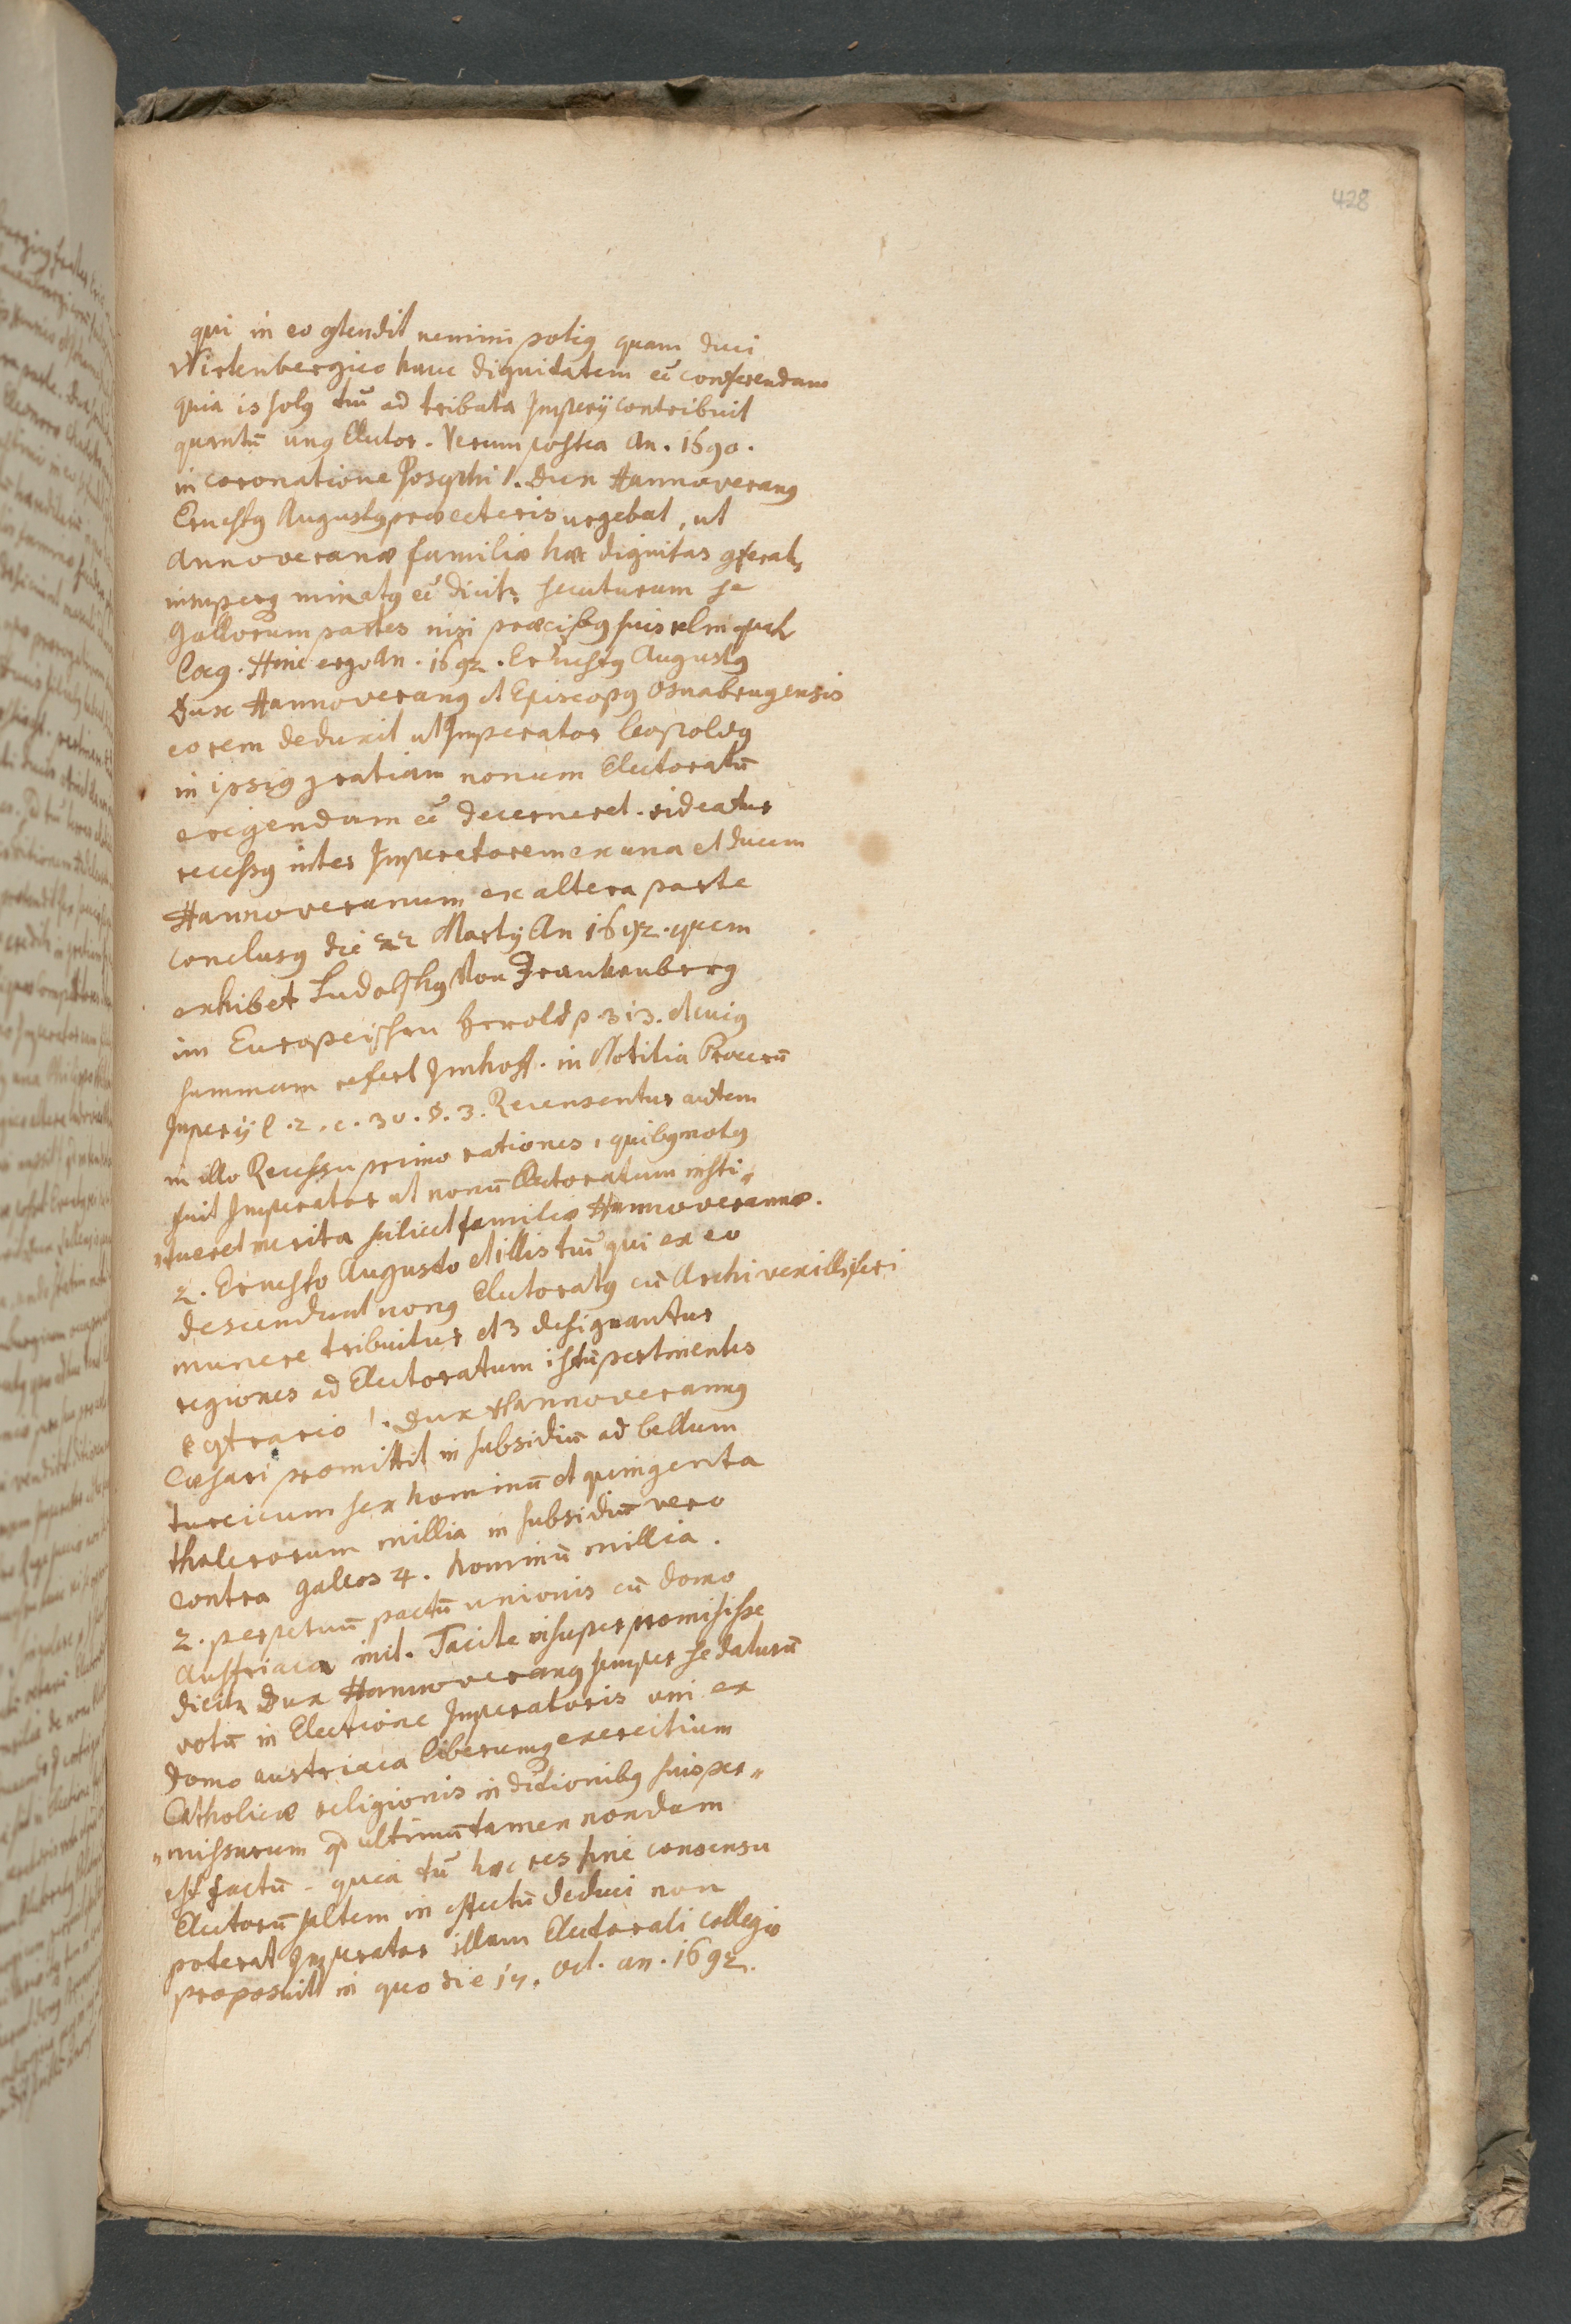 428
qui in eo ꝯtendit nemini potiꝰ quam duci
Wirtenbergico hanc dignitatem eē conferendam
quia is solꝰ tm̄ ad tributa Imperij contribuit
quantū unꝰ Elector. Verum postea An. 1690.
in coronatione Josephi 1. Dux Hannoveranꝰ
Ernestꝰ Augustꝰ præ ceteris urgebat, ut
Annoveranæ familiæ hæc dignitas ꝯferatr,
insuperꝙ minatꝰ eē dicitr, secuturum se
Gallorum partes nisi præcibꝰ suis relinquatr
locꝰ. Hinc ergo An. 1692. Ernestꝰ Augustꝰ
Dux Hannoveranꝰ et Episcopꝰ Osnabrugensis
eo rem deduxit ut Imperator leopoldꝰ
in ipsiꝰ gratiam nonum Electoratū
erigendum eē decerneret. videatur
recessꝰ inter Imperatorem ex una et ducem
Hannoveranum ex altera parte
conclusꝰ die 22 Martij An 1692. quem
exhibet Ludolphꝰ Von Frankenberg
im Europeischen herold p. 313. et cuiꝰ
summam refert Imhoff. in Notitia Procerū
Imperij l. 2. c. 30. §. 3. Recensentur autem
in illo Recessu primo rationes, quibꝰ motꝰ
fuit Imperator ut nonū Electoratum insti„
„tueret merita scilicet familiæ Hannoveranæ.
2. Ernesto Augusto et illis tm̄ qui ex eo
descendunt nonꝰ Electoratꝰ cū Archivexilliferi
munere tribuitur et 3 designantur
regiones ad Electoratum istū pertinentes
E ꝯtrario 1. Dux Hannoveranꝰ
Cæsari promittit in subsidiū ad bellum
turcicum sex hominū et quingenta
thalerorum millia in subsidiū vero
contra gallos 4. hominū millia.
2. perpetuū pactū unionis cū domo
Austriaca init. Tacite insuper promisisse
dicitr Dux Hannoveranꝰ semper se daturū
votū in Electione Imperatoris uni ex
domo austriaca liberumꝙ exercitium
Catholicæ religionis in ditionibꝰ suis per„
„missurum qd ultimū tamen nondum
est factū. quia tū hæc res sine consensu
Electorū saltem in effectū deduci non
poterat Imperator illam Electorali collegio
proposuit in quo die 17. Oct. an. 1692.